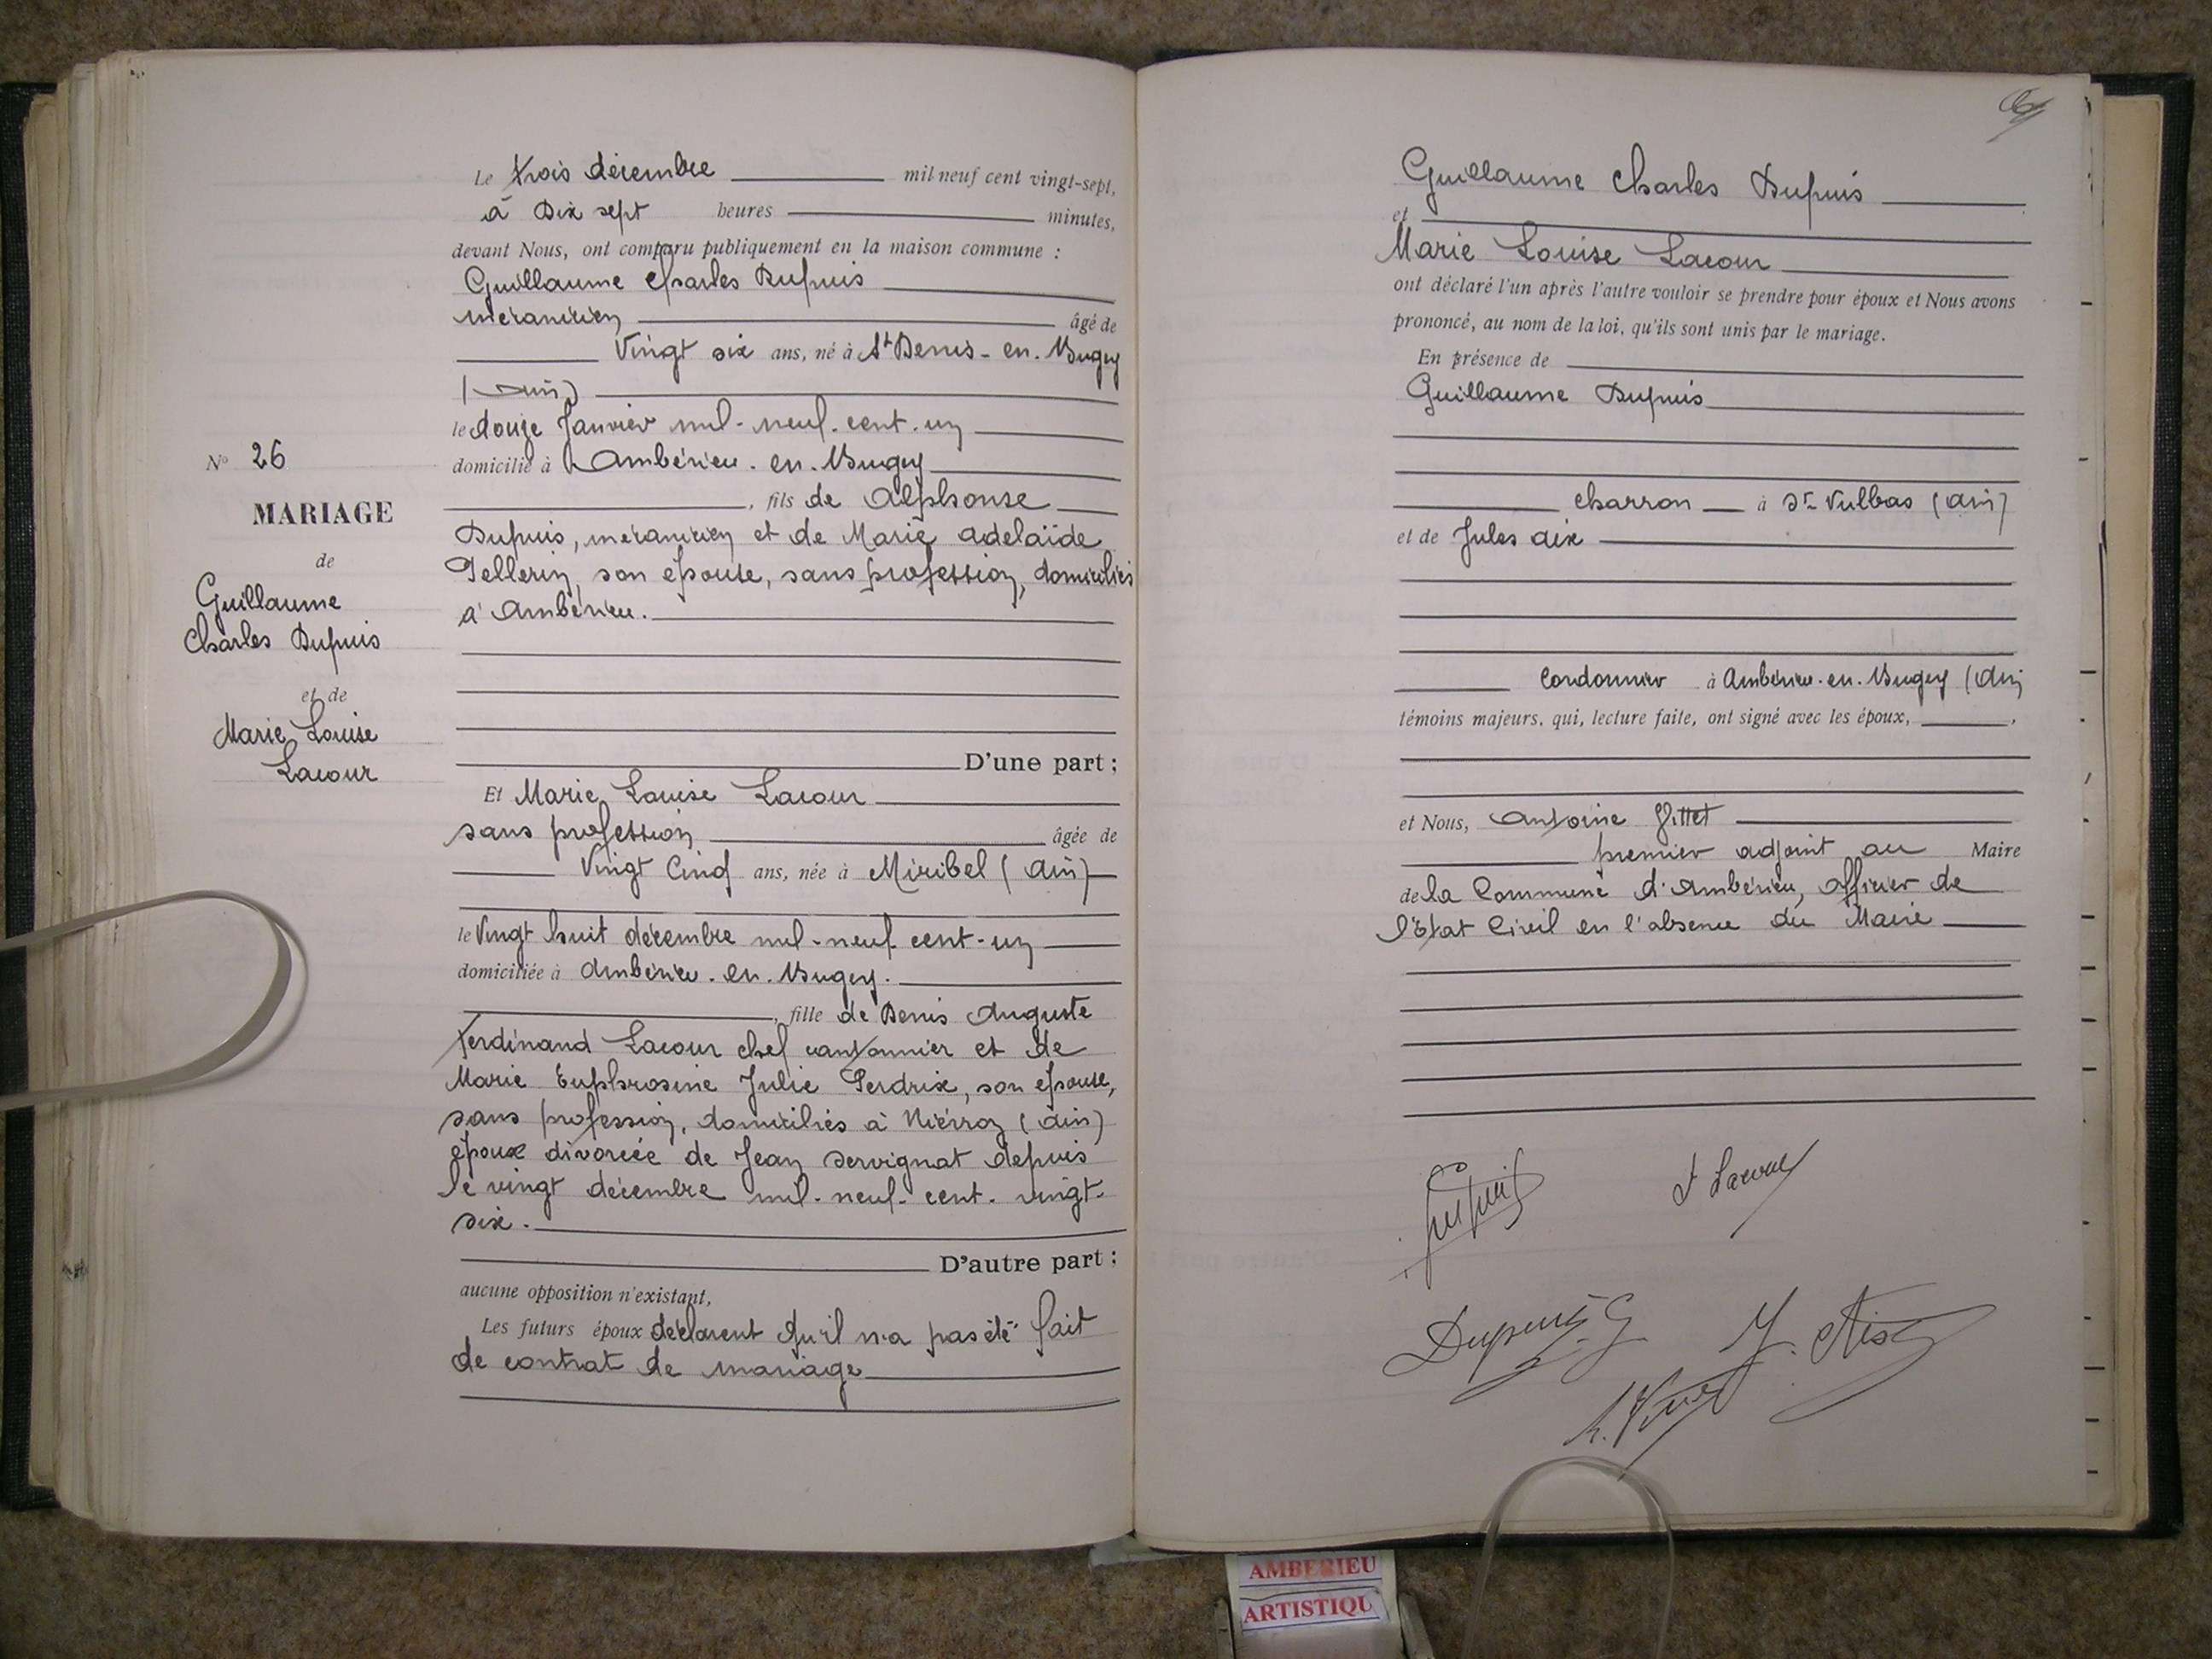 Le trois décembre mil neuf cent vingt-sept,
à Dix sept heures minutes,
devant Nous, ont comparu publiquement en la maison commune :
Guillaume Charles Dupuis
mécanicien âgé de
Vingt six ans, né à St Denis-en-Bugey
(Ain)
le douze Janvier mil-neuf-cent-un
domicilié à Ambérieu-en-Bugey
, fils de Alphonse
Dupuis, mécanicien et de Marie Adelaïde
Pellerin, son épouse, sans profession, domiciliés
à Ambérieu.
D'une part ;
Et Marie Louise Lacour
sans profession âgée de
Vingt Cinq ans, née à Miribel (Ain)
le Vingt huit décembre mil-neuf cent-un
domiciliée à Ambérieu-en-Bugey.
, fille de Denis Auguste
Ferdinand Lacour chef cantonnier et de
Marie Euphrosine Julie Perdrix, son épouse,
sans profession, domiciliés à (Ain)
époux divorcée de Jean Servignat depuis
le vingt décembre mil-neuf-cent-vingt-
six.
D'autre part ;
aucune opposition n'existant,
Les futurs époux déclarent qu'il n'a pas été fait
de contrat de mariage
N° 26
MARIAGE
de
Guillaume
Charles Dupuis
et de
Marie Louise
Lacour
Guillaume Charles Dupuis
et
Marie Louise Lacour
ont déclaré l'un après l'autre vouloir se prendre pour époux et Nous avons
prononcé, au nom de la loi, qu'ils sont unis par le mariage.
En présence de
Guillaume Dupuis
charron à St Vulbas (Ain)
et de Jules Aix
Cordonnier à Ambérieu-en-Bugey (Ain)
témoins majeurs, qui, lecture faite, ont signé avec les époux,
et Nous, Antoine
premier adjoint au Maire
de la Commune d'Ambérieu, officier de
l'État Civil en l'absence du Maire
Dupuis
Lacour
Dupuis G
J. Aix
AMBERIEU
ARTISTIQU